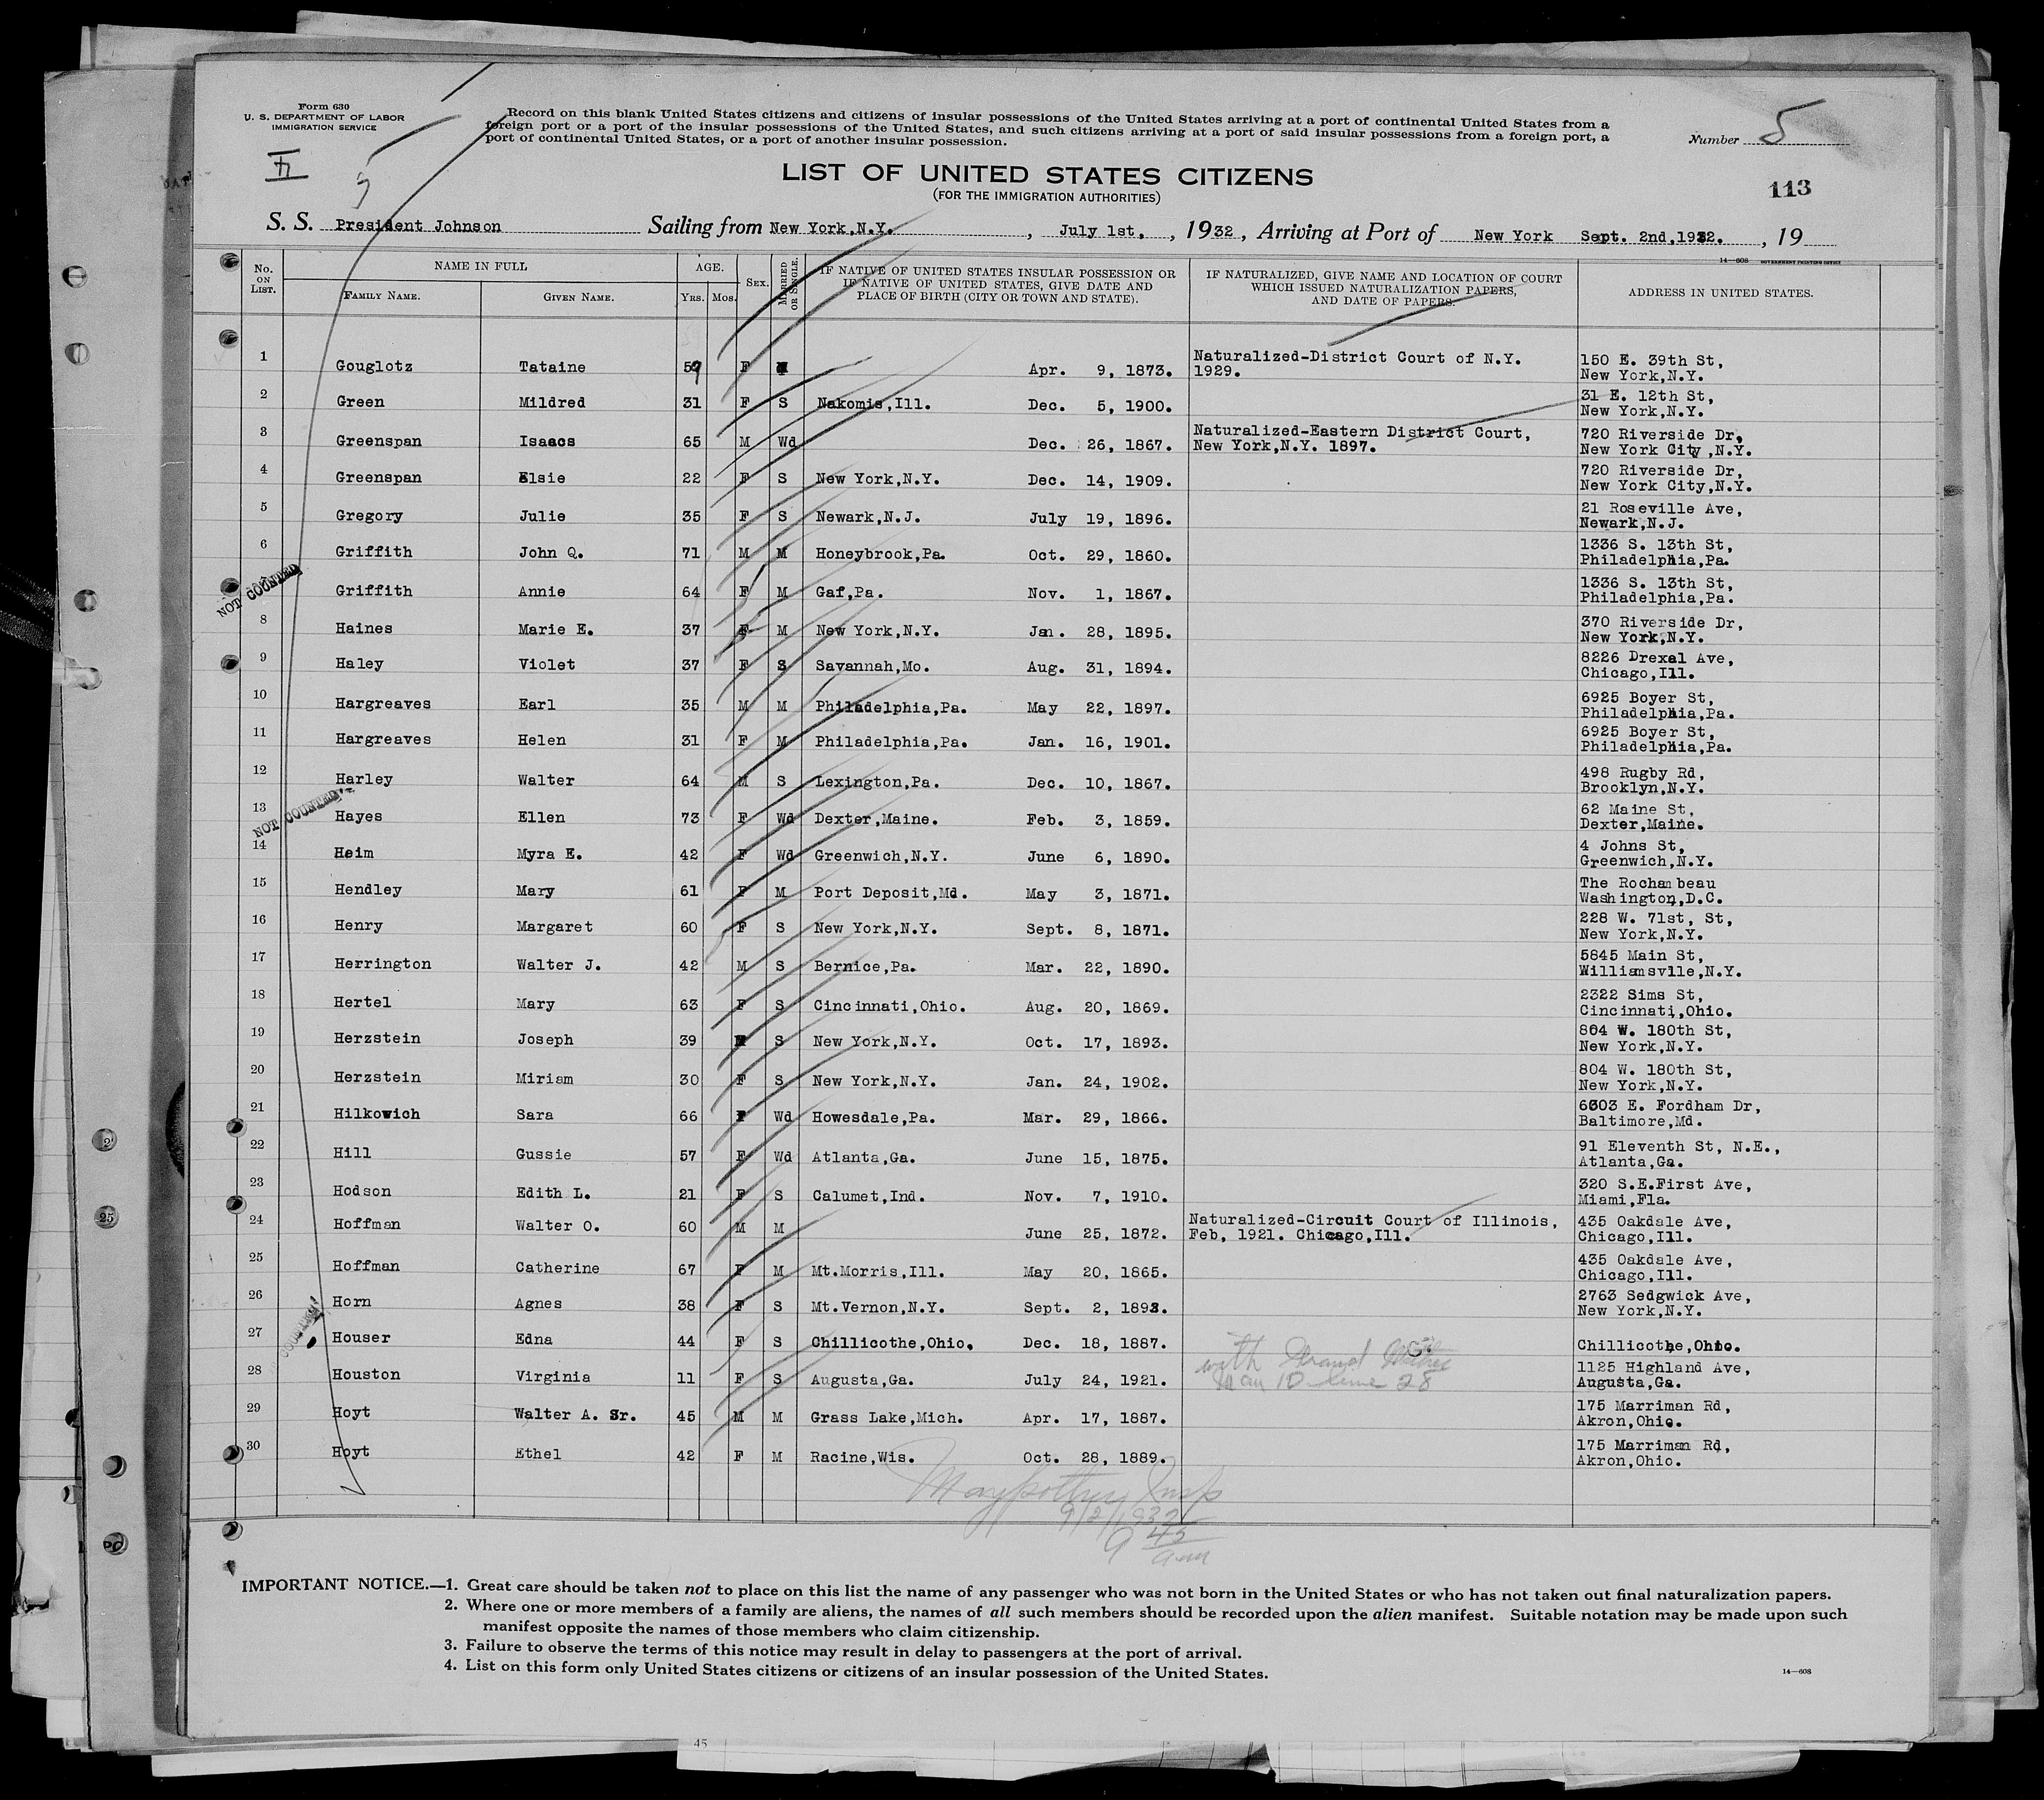 Form 630
U. S. DEPARTMENT OF LABOR
IMMIGRATION SERVICE
Record on this blank United States citizens and citizens of insular possessions of the United States arriving at a port of continental United States from a
foreign port or a port of the insular possessions of the United States, and such citizens arriving at a port of said insular possessions from a foreign port, a
port of continental United States, or a port of another insular possession.
Number 5
LIST OF UNITED STATES CITIZENS
(FOR THE IMMIGRATION AUTHORITIES)
113
S. S. President Johnson Sailing from New York,N.Y. , July 1st, , 1932, Arriving at Port of New York Sept. 2nd,1932. , 19
14—608 GOVERNMENT PRINTING OFFICE
No. ON LIST. NAME IN FULL FAMILY NAME. GIVEN NAME. AGE. YRS. MOS. SEX. MARRIED OR SINGLE. IF NATIVE OF UNITED STATES INSULAR POSSESSION OR IF NATIVE OF UNITED STATES, GIVE DATE AND PLACE OF BIRTH (CITY OR TOWN AND STATE). IF NATURALIZED, GIVE NAME AND LOCATION OF COURT WHICH ISSUED NATURALIZATION PAPERS, AND DATE OF PAPERS. ADDRESS IN UNITED STATES.
1 Gouglotz Tataine 59 F Apr. 9, 1873. Naturalized-District Court of N.Y. 1929. 150 E. 39th St, New York,N.Y.
2 Green Mildred 31 F S Nakomis,Ill. Dec. 5, 1900. 31 E. 12th St, New York,N.Y.
3 Greenspan Isaacs 65 M Wd Dec. 26, 1867. Naturalized-Eastern District Court, New York,N.Y. 1897. 720 Riverside Dr, New York City,N.Y.
4 Greenspan Elsie 22 F S New York,N.Y. Dec. 14, 1909. 720 Riverside Dr, New York City,N.Y.
5 Gregory Julie 35 F S Newark,N.J. July 19, 1896. 21 Roseville Ave, Newark,N.J.
6 Griffith John Q. 71 M M Honeybrook,Pa. Oct. 29, 1860. 1336 S. 13th St, Philadelphia,Pa.
NOT COUNTED Griffith Annie 64 F M Gaf,Pa. Nov. 1, 1867. 1336 S. 13th St, Philadelphia,Pa.
8 Haines Marie E. 37 F M New York,N.Y. Jan. 28, 1895. 370 Riverside Dr, New York,N.Y.
9 Haley Violet 37 F S Savannah,Mo. Aug. 31, 1894. 8226 Drexal Ave, Chicago,Ill.
10 Hargreaves Earl 35 M M Philadelphia,Pa. May 22, 1897. 6925 Boyer St, Philadelphia,Pa.
11 Hargreaves Helen 31 F M Philadelphia,Pa. Jan. 16, 1901. 6925 Boyer St, Philadelphia,Pa.
12 Harley Walter 64 M S Lexington,Pa. Dec. 10, 1867. 498 Rugby Rd, Brooklyn,N.Y.
13 NOT COUNTED Hayes Ellen 73 F Wd Dexter,Maine. Feb. 3, 1859. 62 Maine St, Dexter,Maine.
14 Heim Myra E. 42 F Wd Greenwich,N.Y. June 6, 1890. 4 Johns St, Greenwich,N.Y.
15 Hendley Mary 61 F M Port Deposit,Md. May 3, 1871. The Rochambeau Washington,D.C.
16 Henry Margaret 60 F S New York,N.Y. Sept. 8, 1871. 228 W. 71st, St, New York,N.Y.
17 Herrington Walter J. 42 M S Bernice,Pa. Mar. 22, 1890. 5845 Main St, Williamsvlle,N.Y.
18 Hertel Mary 63 F S Cincinnati,Ohio. Aug. 20, 1869. 2322 Sims St, Cincinnati,Ohio.
19 Herzstein Joseph 39 M S New York,N.Y. Oct. 17, 1893. 804 W. 180th St, New York,N.Y.
20 Herzstein Miriam 30 F S New York,N.Y. Jan. 24, 1902. 804 W. 180th St, New York,N.Y.
21 Hilkowich Sara 66 F Wd Howesdale,Pa. Mar. 29, 1866. 6603 E. Fordham Dr, Baltimore,Md.
22 Hill Gussie 57 F Wd Atlanta,Ga. June 15, 1875. 91 Eleventh St, N.E., Atlanta,Ga.
23 Hodson Edith L. 21 F S Calumet,Ind. Nov. 7, 1910. 320 S.E.First Ave, Miami,Fla.
24 Hoffman Walter O. 60 M M June 25, 1872. Naturalized-Circuit Court of Illinois, Feb, 1921. Chicago,Ill. 435 Oakdale Ave, Chicago,Ill.
25 Hoffman Catherine 67 F M Mt.Morris,Ill. May 20, 1865. 435 Oakdale Ave, Chicago,Ill.
26 Horn Agnes 38 F S Mt.Vernon,N.Y. Sept. 2, 1893. 2763 Sedgwick Ave, New York,N.Y.
27 Houser Edna 44 F S Chillicothe,Ohio. Dec. 18, 1887. Chillicothe,Ohio.
28 Houston Virginia 11 F S Augusta,Ga. July 24, 1921. with Grand Mother 10 Line 28 1125 Highland Ave, Augusta,Ga.
29 Hoyt Walter A. Sr. 45 M M Grass Lake,Mich. Apr. 17, 1887. 175 Marriman Rd, Akron,Ohio.
30 Hoyt Ethel 42 F M Racine,Wis. Oct. 28, 1889. 175 Marriman Rd, Akron,Ohio.
Insp
9/2/1932
9 45 am
IMPORTANT NOTICE.—1. Great care should be taken not to place on this list the name of any passenger who was not born in the United States or who has not taken out final naturalization papers.
2. Where one or more members of a family are aliens, the names of all such members should be recorded upon the alien manifest. Suitable notation may be made upon such
manifest opposite the names of those members who claim citizenship.
3. Failure to observe the terms of this notice may result in delay to passengers at the port of arrival.
4. List on this form only United States citizens or citizens of an insular possession of the United States.
14—608
45